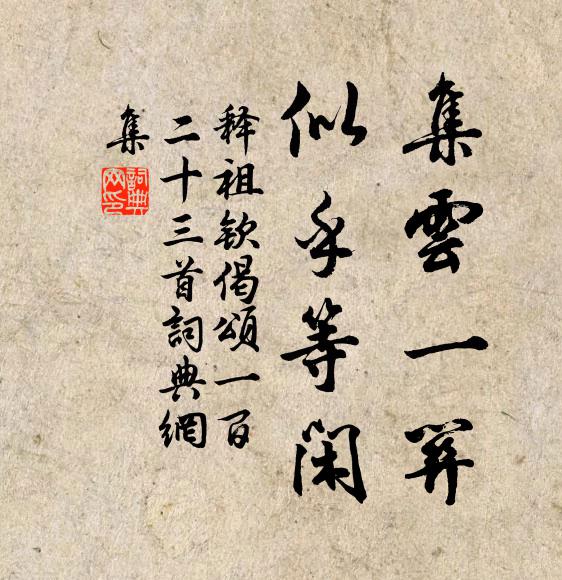 集雲一關
似乎等閑
释祖欽偈頌一百
二十三首詞典網
集
詞典
网印